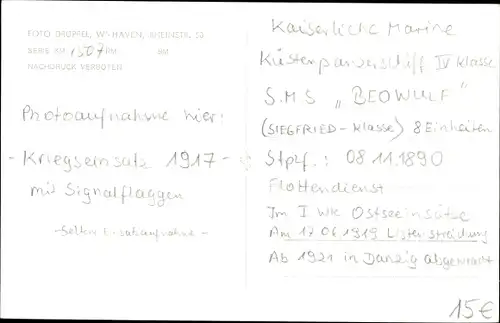 FOTO DROPPEL, W'HAVEN, RHEINSTR. 
SERIE KM 1507 PM RM
NACHDRUCK VERBOTEN
Photoaufnahme hier:
- Kriegseinsatz 1917 -
mit Signalflaggen
- Selten E satzaufnahme -
Kaiserliche Marine
Küstenpanzerschiff IV Klasse
S.M.S „BEOWULF"
(SIEGFRIED - Klasse) 8 Einheiten
Stplf.: 08.11.1890
Flottendienst
Im I WK Ostseeinsätze
Am 17.06.1919 Listenstreichung
Ab 1921 in Danzig abgewrackt
15€